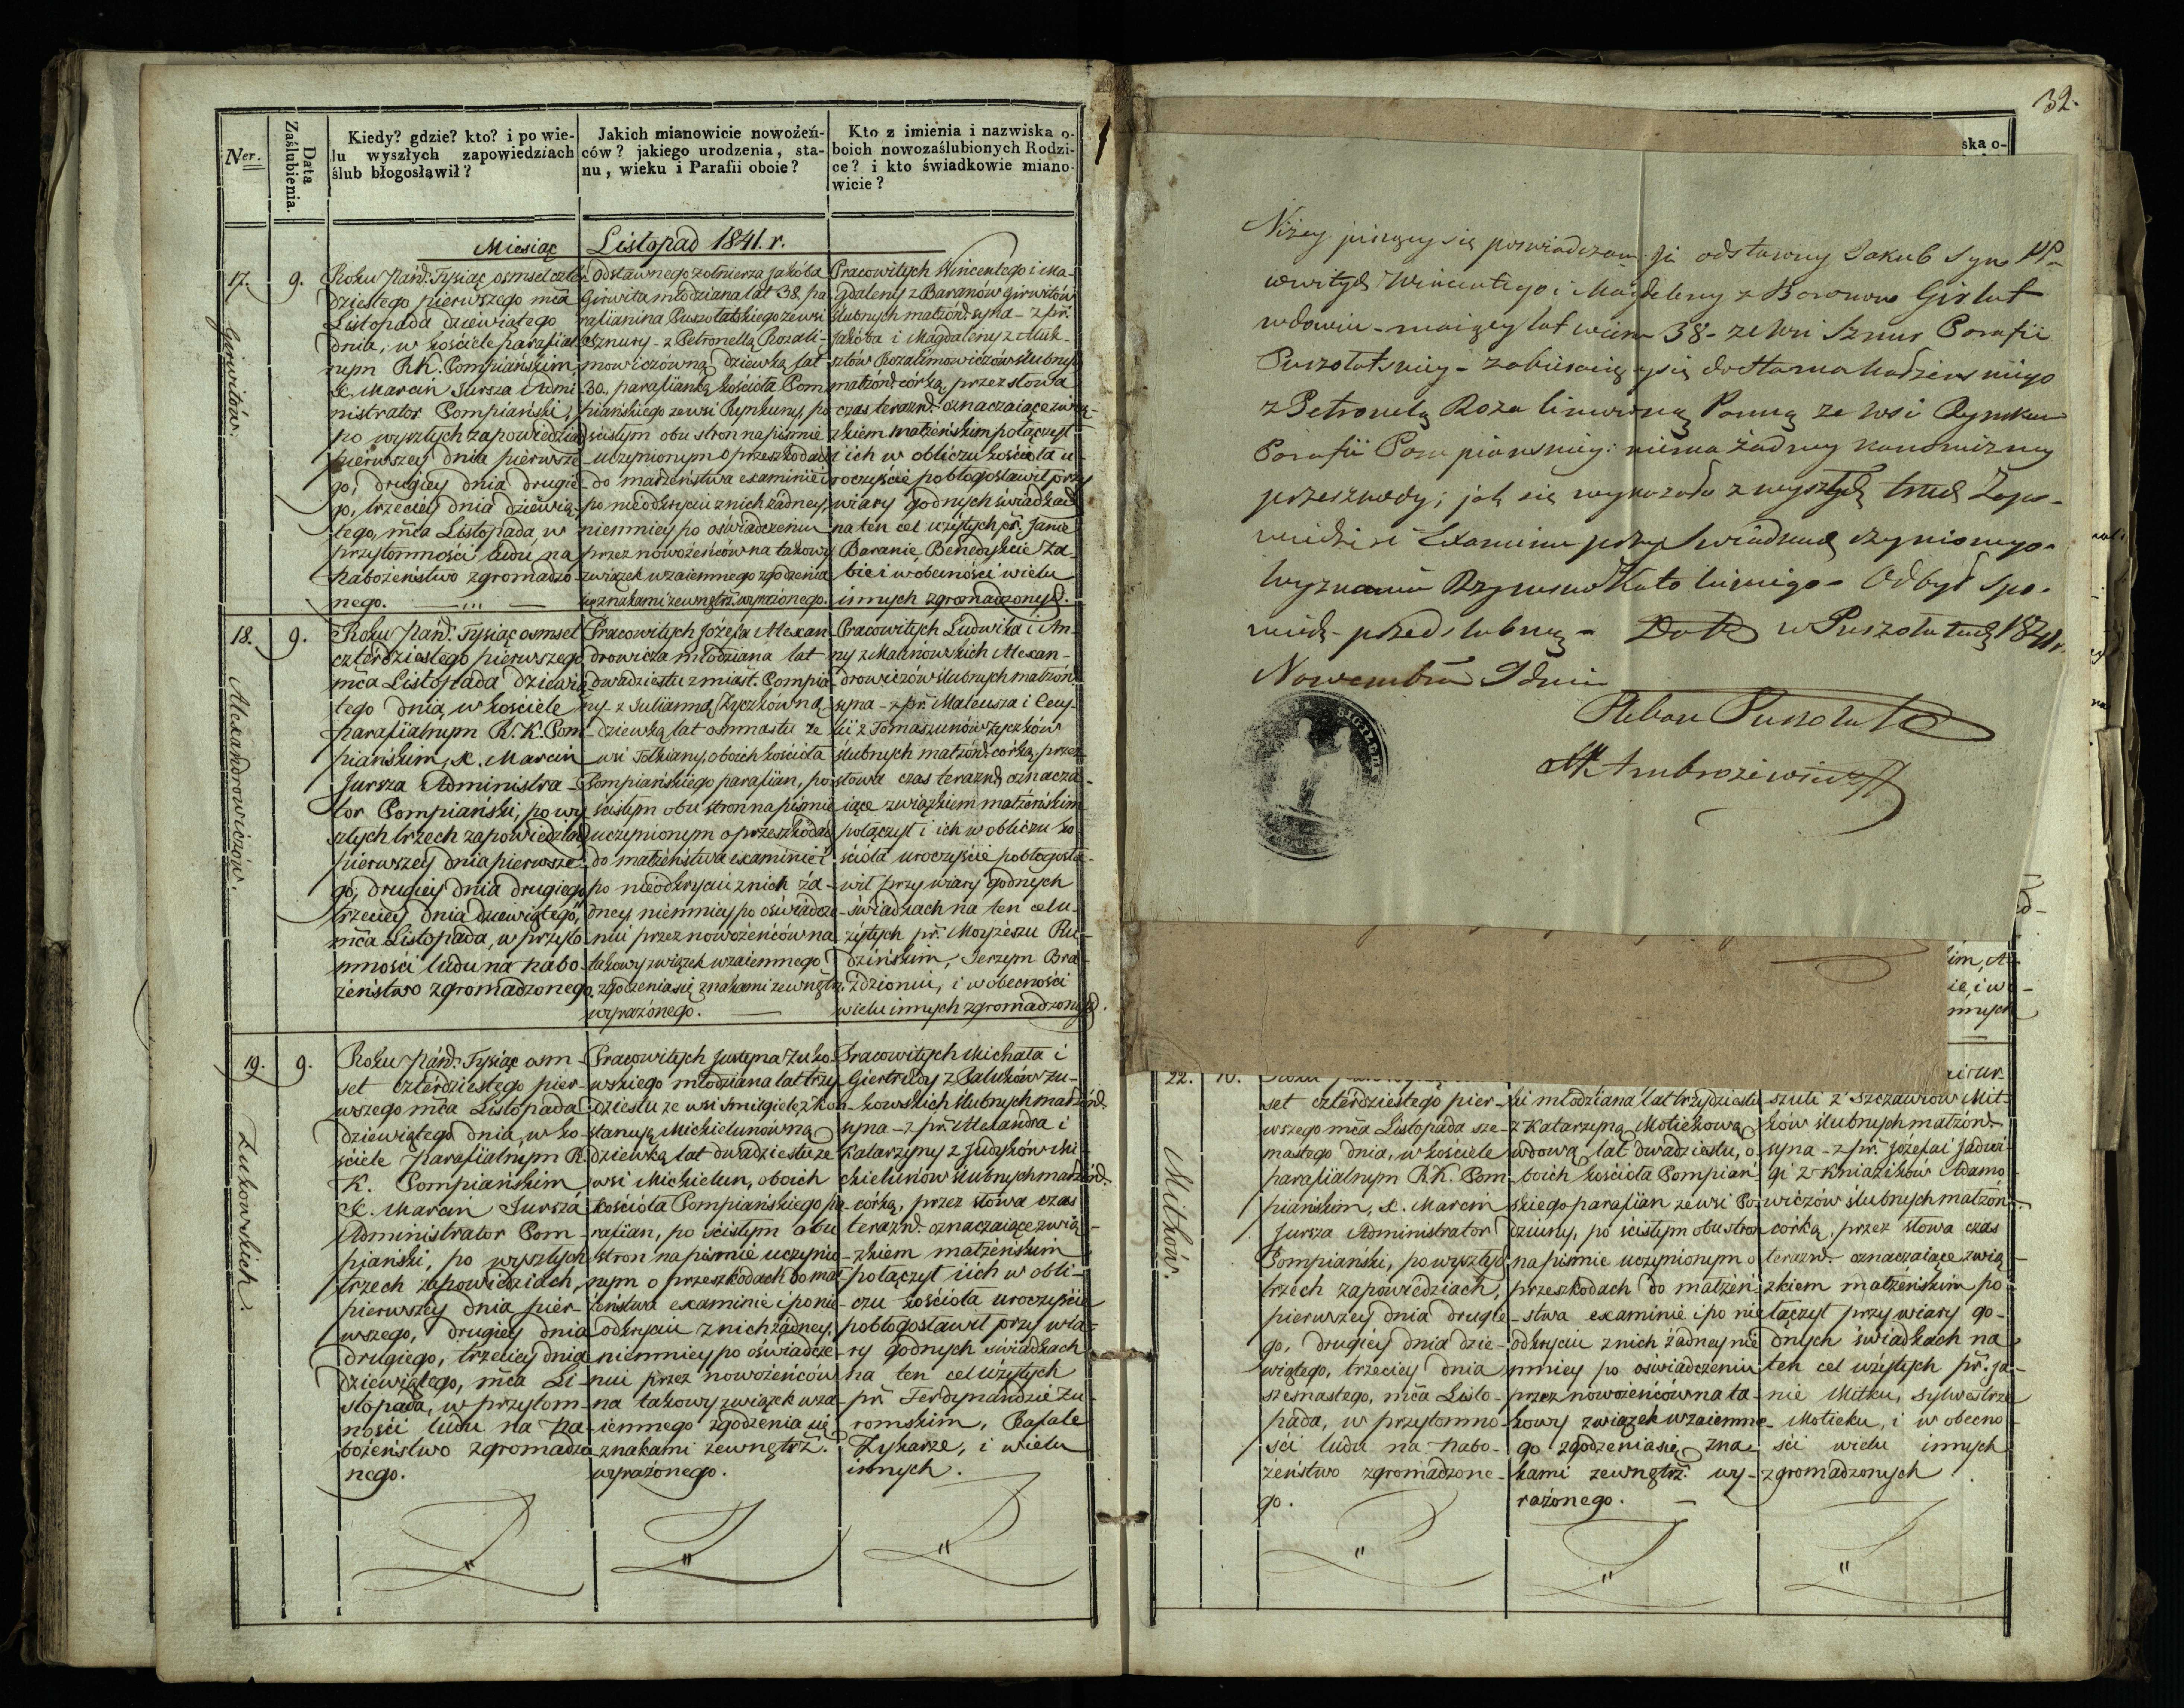 Ner.
Data Zaślubienia.
Kiedy? gdzie? kto? i po wie-
lu wyszłych zapowiedziach
ślub błogosławił?
Jakich mianowicie nowożeń-
ców? jakiego urodzenia, sta-
nu, wieku i Parafii oboie?
Kto z imienia i nazwiska o-
boich nowozaślubionych Rodzi-
ce? i kto świadkowie miano-
wicie?
Miesiąc Listopad 1841. r.
17.
Girwitów.
9.
Roku Pańd. Tysiąc osmset czter-
dziestego pierwszego mca
Listopada dziewiątego
dnia, w kościele parafial-
nym R.K. Pompiańskim
X. Marcin Jursza Admi-
nistrator Pompiański,
po wyszłych zapowiedziach
pierwszey dnia pierwsze-
go, drugiey dnia drugie-
go, trzeciey dnia dziewią-
tego, mca Listopada, w
przytomności ludu na
nabożeństwo zgromadzo-
nego.
Odstawnego żołnierza Jakóba
Girwita młodziana lat 38. pa-
rafianina Puszołatskiego ze wsi
Sznury - z Petronellą Rozali-
mowiczówną dziewką lat
30. parafianką kościoła Pom-
piańskiego ze wsi Rynkuny, po
ścisłym obu stron na piśmie
uczynionym o przeszkodach
do małżeństwa examinie i
po nieodkryciu z nich żadney,
niemniey po oświadczeniu
przez nowożeńców na takowy
związek wzaiemnego zgodzenia
się znakami zewnętrz. wyrażonego.
Pracowitych Wincentego i Ma-
gdaleny z Baranów Girwitów
ślubnych małżond. syna - z pr.
Jakóba i Magdaleny z Muk-
sztów Rozalimowiczów ślubnych
małżond. córką, przez słowa
czas teraznd. oznaczaiące zwią-
zkiem małżeńskim połączył
i ich w obliczu kościoła u-
roczyście pobłogosławił przy
wiary godnych świadkach
na ten cel użytych pr. Janie
Baranie, Benedykcie Ża-
bie i w obecności wielu
innych zgromadzonych.
18.
Alexandrowiczów.
9.
Roku Pańd. Tysiąc osmset
czterdziestego pierwszego
mca Listopada dziewią-
tego dnia, w kościele
parafialnym R.K. Pom-
piańskim, X. Marcin
Jursza Administra-
tor Pompiański, po wy-
szłych trzech zapowiedziach
pierwszey dnia pierwsze-
go, drugiey dnia drugiego,
trzeciey dnia dziewiątego,
mca Listopada, w przyto-
mności ludu na nabo-
żeństwo zgromadzonego.
Pracowitych Józefa Alexan-
drowicza młodziana lat
dwadziestu z miast. Pompia-
ny - z Julianną Zyczkówną
dziewką lat osmnastu ze
wsi Tolkiany, oboich kościoła
Pompiańskiego parafian, po
ścisłym obu stron na piśmie
uczynionym o przeszkodach
do małżeństwa examinie i
po nieodkryciu z nich ża-
dney, niemniey po oświadcze-
niu przez nowożeńców na
takowy związek wzaiemnego
zgodzenia się znakami zewnętrz.
wyrażonego.
Pracowitych Ludwika i An-
ny z Malinowskich Alexan-
drowiczów ślubnych małżond.
syna - z pr. Mateusza i Cecy-
lii z Tomaszunów Zyczków
ślubnych małżond. córką, przez
słowa czas teraznd. oznacza-
iące związkiem małżeńskim
połączył i ich w obliczu ko-
ścioła uroczyście pobłogosła-
wił przy wiary godnych
świadkach na ten cel u-
żytych pr. Moyżeszu Ru-
dzińskim, Jerzym Bra-
żdzioniu, i w obecności
wielu innych zgromadzonych.
19.
Żukowskich.
9.
Roku Pańd. Tysiąc osm-
set czterdziestego pier-
wszego mca Listopada
dziewiątego dnia, w ko-
ściele parafialnym R.
K. Pompiańskim
X. Marcin Jursza
Administrator Pom-
piański, po wyszłych
trzech zapowiedziach,
pierwszey dnia pier-
wszego, drugiey dnia
drugiego, trzeciey dnia
dziewiątego, mca Li-
stopada, w przytom-
ności ludu na na-
bożeństwo zgromadzo-
nego.
Pracowitych Justyna Żuko-
wskiego młodziana lat trzy-
dziestu ze wsi Smilgiele z Kon-
stancyą Michielunówną
dziewką lat dwadziestu ze
wsi Michielun, oboich
kościoła Pompiańskiego pa-
rafian, po ścisłym obu
stron na piśmie uczynio-
nym o przeszkodach do mał-
żeństwa examinie i po nie-
odkryciu z nich żadney,
niemniey po oświadcze-
niu przez nowożeńców
na takowy związek wza-
iemnego zgodzenia się
znakami zewnętrz.
wyrażonego.
Pracowitych Michała i
Giertrudy z Baluków Żu-
kowskich ślubnych małżond.
syna - z pr. Alexandra i
Katarzyny z Judyków Mi-
chielunów ślubnych małżond.
córką, przez słowa czas
teraznd. oznaczaiące zwią-
zkiem małżeńskim
połączył i ich w obli-
czu kościoła uroczyście
pobłogosławił przy wia-
ry godnych świadkach
na ten cel użytych
pr. Ferdynandzie Żu-
romskim, Rafale
Zykarze, i wielu
innych.
32.
ska o-
Niżey piszący się poswiadczam Ji odstawny Jakub Syn PP
cowitych Wincentego i Magdeleny z Baronow Girlut
wdowiec - maiący lat wieku 38 - ze Wsi Sznur Parafii
Puszołatskiey - zabieraiący się do stanu Małżenskiego
z Petronelą Rozalimowną Panną ze wsi Rynkun
Parafii Pompianskiey: niema żadney kanoniczney
przeszkody; jak się wykazało z wyszłych trzech Zapo-
wiedzi i Examinu przy Swiadkach czynionego.
Wyznania Rzymsko Katolickiego - Odbył Spo-
wiedź przedslubną - Dat w Puszołatach 1841 r.
Nowembra 9 dnia
Pleban Puszołatski
M Ambrożewicz
im, A-
ie, i wo-
nnych
22.
Mitków.
10.
set czterdziestego pier-
wszego mca Listopada sze-
snastego dnia, w kościele
parafialnym R.K. Pom-
piańskim, X. Marcin
Jursza Administrator
Pompiański, po wyszłych
trzech zapowiedziach,
pierwszey dnia drugie-
go, drugiey dnia dzie-
wiątego, trzeciey dnia
szesnastego, mca Listo-
pada, w przytomno-
ści ludu na nabo-
żeństwo zgromadzone-
go.
ki młodziana lat trzydziestu
z Katarzyną Motiekową
wdową lat dwadziestu, o-
boich kościoła Pompiań-
skiego parafian ze wsi Poz-
dziuny, po ścisłym obu stron
na piśmie uczynionym o
przeszkodach do małżeń-
stwa examinie i po nie
odkryciu z nich żadney nie-
mniey po oświadczeniu
przez nowożeńców na ta-
kowy związek wzaiemne-
go zgodzenia się zna-
kami zewnętrz. wy-
rażonego.
szuli z Szczawiów Mit-
ków ślubnych małżond.
syna - z pr. Józefa i Jadwi-
gi z Kniazików Adamo-
wiczów ślubnych małżon.
córką, przez słowa czas
teraznd. oznaczaiące zwią-
zkiem małżeńskim po-
łączył przy wiary go-
dnych świadkach na
ten cel użytych pr. Ja-
nie Mitku, Sylwestrze
Motieku, i w obecno-
ści wielu innych
zgromadzonych